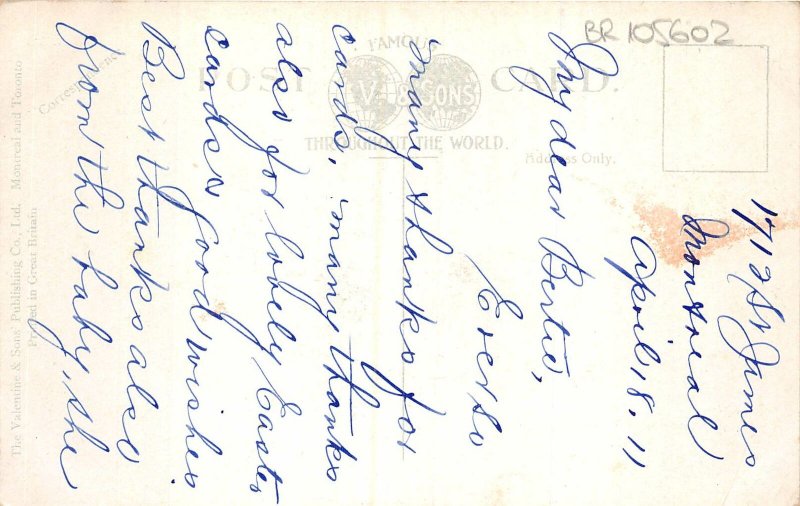 BR 105602
FAMOUS
POST CARD.
V. & SONS
THROUGHOUT THE WORLD.
Correspondence
Address Only.
The Valentine & Sons' Publishing Co., Ltd. Montreal and Toronto
Printed in Great Britain
1712 St James
Montreal
April 18. 11
My dear Bertie,
Ever so
many thanks for
cards, many thanks
also for lovely Easter
cards & good wishes
Best thanks also
from the baby, she